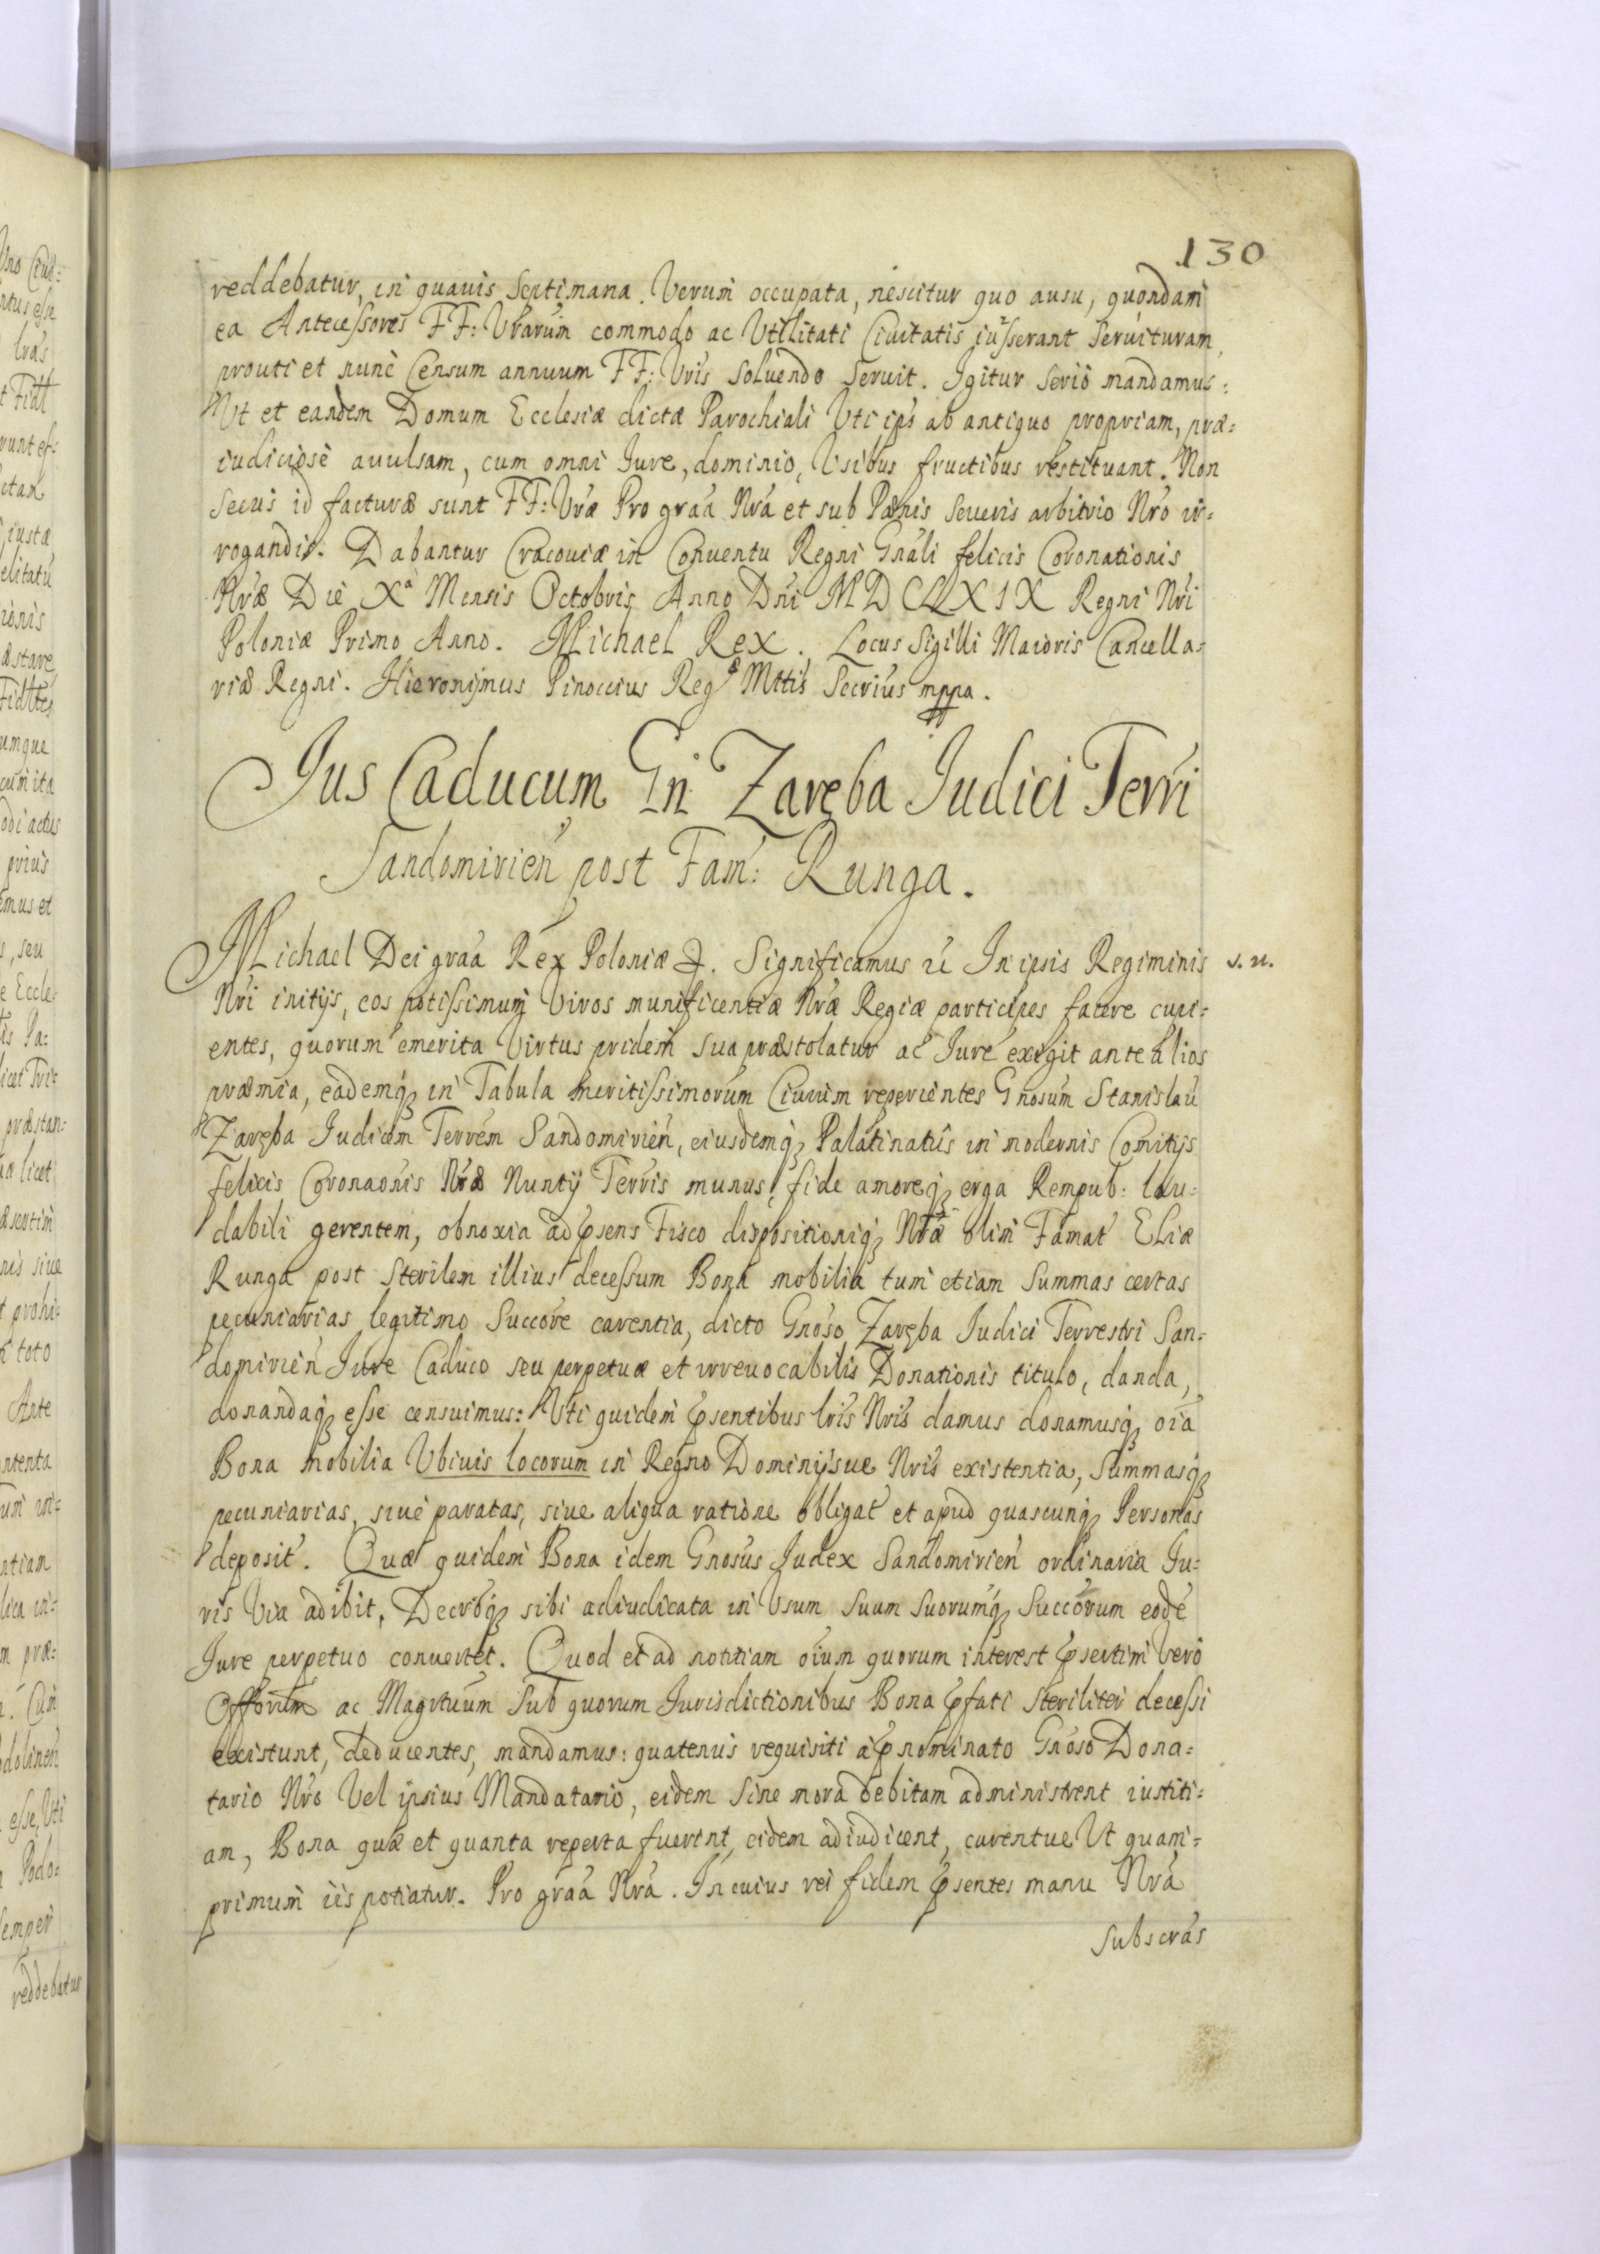 130
reddebatur, in quauis Septimana. Verum occupata, nescitur quo ausu, quondam
ea Antecessores FF: Vrarum commodo ac Vtilitati Ciuitatis iusserant Seruituram,
prouti et nunc Censum annuum FF: Vris Soluendo Seruit. Igitur Serio mandamus:
Vt et eandem Domum Ecclesiæ dictæ Parochiali Vti ipsi ab antiquo propriam, præ=
iudiciose auulsam, cum omni Iure, dominio, Vsibus fructibus restituant. Non
Secus id facturæ sunt FF: Vræ Pro graa Nra et sub Pænis Seueris arbitrio Nro ir=
rogandis. Dabantur Cracouiæ in Conuentu Regni Gnali felicis Coronationis
Nræ Die Xa Mensis Octobris Anno Dni MDCLXIX Regni Nri
Poloniæ Primo Anno. Michael Rex. Locus Sigilli Maioris Cancella=
riæ Regni. Hieronijmus Pinoccius Reg Mttis Secrius mppa.
Ius Caducum Gn Zaręba Iudici Terri
Sandomirien post Fam: Runga.
Michael Dei graa Rex Poloniæ &. Significamus &c In ipsis Regiminis
s. n.
Nri initijs, eos potissimum Viros munificentiæ Nræ Regiæ participes facere cupi=
entes, quorum emerita Virtus pridem sua præstolatur ac Iure exigit ante alios
præmia, eademq in Tabula meritissimorum Ciuium reperientes Gnosum Stanislau
Zaręba Iudicem Terrem Sandomirien, eiusdemq Palatinatus in modernis Comitijs
felicis Coronaonis Nræ Nuntij Terris munus, fide amoreq erga Rempub: lau=
dabili gerentem, obnoxia ad psens Fisco dispositioniq Nræ olim Famat Eliæ
Runga post Sterilem illius decessum Bona mobilia tum etiam Summas certas
pecuniarias legitimo Succore carentia, dicto Gnoso Zaręba Iudici Terrestri San=
domirien Iure Caduco seu perpetuæ et irreuocabilis Donationis titulo, danda,
donandaq esse censuimus: Vti quidem psentibus lris Nris damus donamusq oia
Bona mobilia Vbiuis locorum in Regno Dominijsue Nris existentia, Summasq
pecuniarias, siue paratas, siue aliqua ratione obligat et apud quascunq Personas
deposit. Quæ quidem Bona idem Gnosus Iudex Sandomirien ordinaria Iu=
ris Via adibit, Decrbq sibi adiudicata in Vsum Suum Suorumq Succorum eode
Iure perpetuo conuertet. Quod et ad notitiam oium quorum interest psertim Vero
Offorum ac Magrtuum Sub quorum Iurisdictionibus Bona pfati Steriliter decessi
existunt, deducentes, mandamus: quatenus requisiti a pnominato Gnoso Dona=
tario Nro Vel ipsius Mandatario, eidem Sine mora debitam administrent iustiti=
am, Bona quæ et quanta reperta fuerint, eidem adiudicent, curentue Vt quam=
primum iis potiatur. Pro graa Nra. In cuius rei fidem psentes manu Nra
Subscras